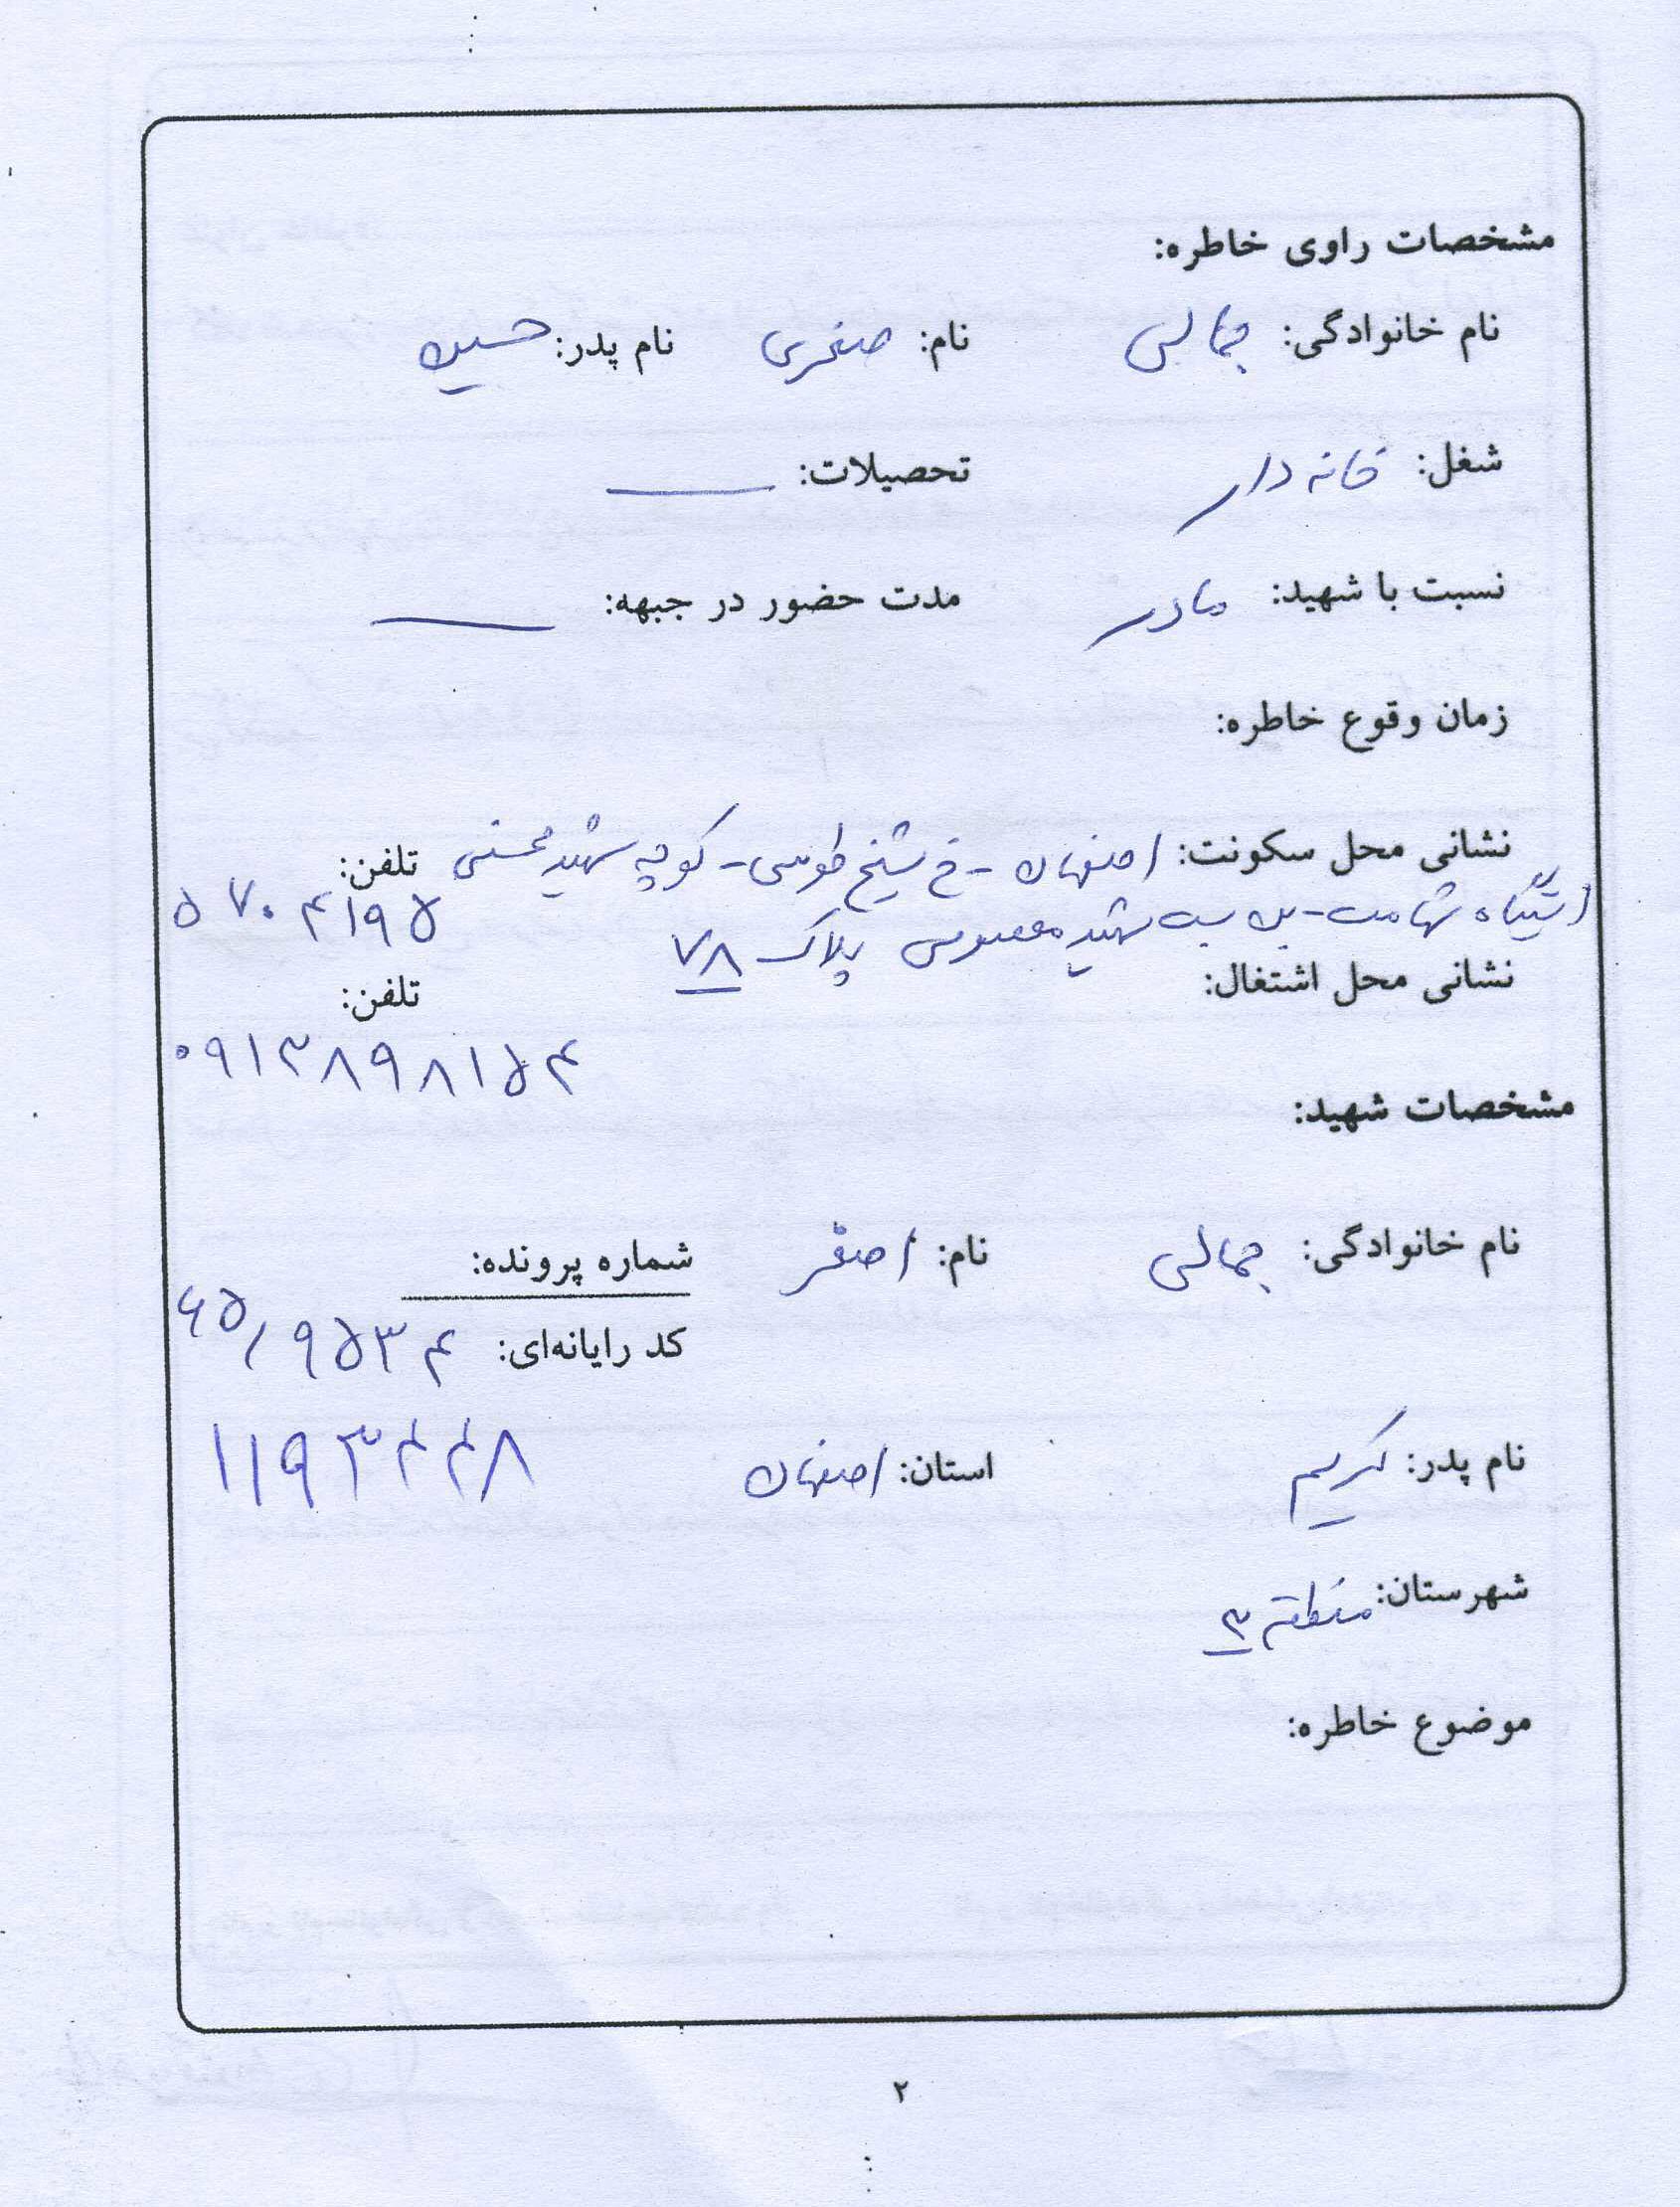 مشخصات راوی خاطره:
نام خانوادگی: جمالی نام: صغری نام پدر: حسین
شغل: خانه دار تحصیلات: ــــ
نسبت با شهید: مادر مدت حضور در جبهه: ــــ
زمان وقوع خاطره:
نشانی محل سکونت: اصفهان - خ شیخ طوسی - کوچه شهید محسنی تلفن:
شهامت - بن بست شهید معصومی پلاک ۷۸ ۵۷۰۴۱۹۵
نشانی محل اشتغال: تلفن:
۰۹۱۳۸۹۸۱۵۴
مشخصات شهید:
نام خانوادگی: جمالی نام: اصغر شماره پرونده:
کد رایانه‌ای: ۶۵/۹۵۳۴
نام پدر: کریم استان: اصفهان ۱۱۹۳۴۴۸
شهرستان: منطقه ۳
موضوع خاطره:
۲